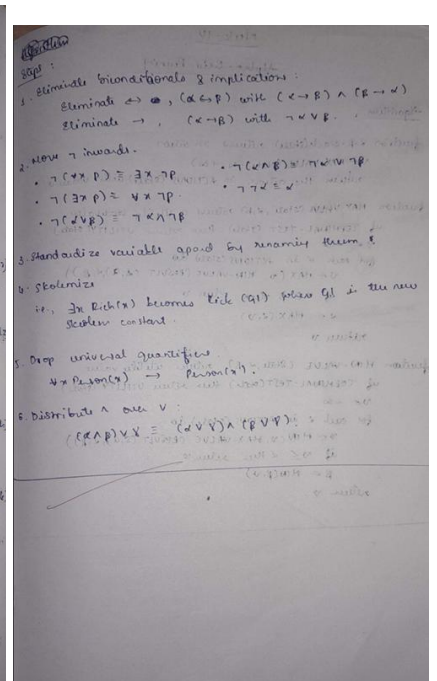 Algorithm
Steps :
1. Eliminate biconditionals & implications :
Eliminate ↔ , (α ↔ β) with (α → β) ∧ (β → α)
Eliminate → , (α → β) with ¬α ∨ β .
2. Move ¬ inwards.
• ¬(∀x P) ≡ ∃x ¬P • ¬(α ∧ β) ≡ ¬α ∨ ¬β
• ¬(∃x P) ≡ ∀x ¬P • ¬¬α ≡ α
• ¬(α ∨ β) ≡ ¬α ∧ ¬β
3. Standardize variable apart by renaming them
4. Skolemize
i.e., ∃x Rich(x) becomes Rich (G1) where G1 is the new
skolem constant
5. Drop universal quantifiers
∀x Person(x) → Person(x).
6. Distribute ∧ over ∨ :
(α ∧ β) ∨ γ ≡ (α ∨ γ) ∧ (β ∨ γ)